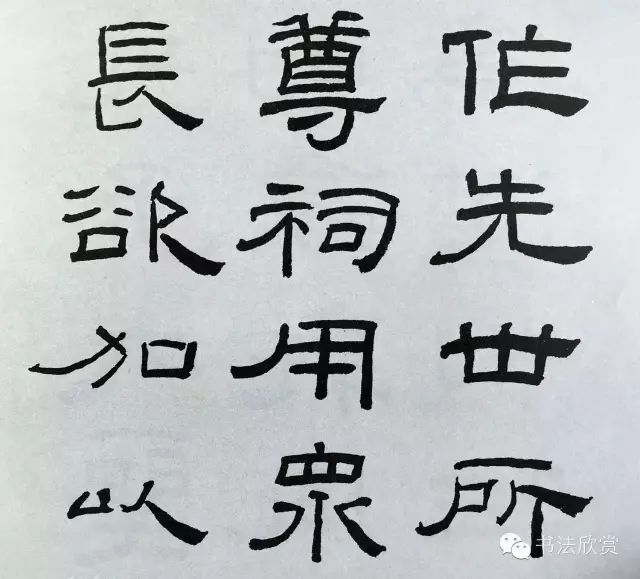 作先世所
尊祠用眾
長欲加以
书法欣赏